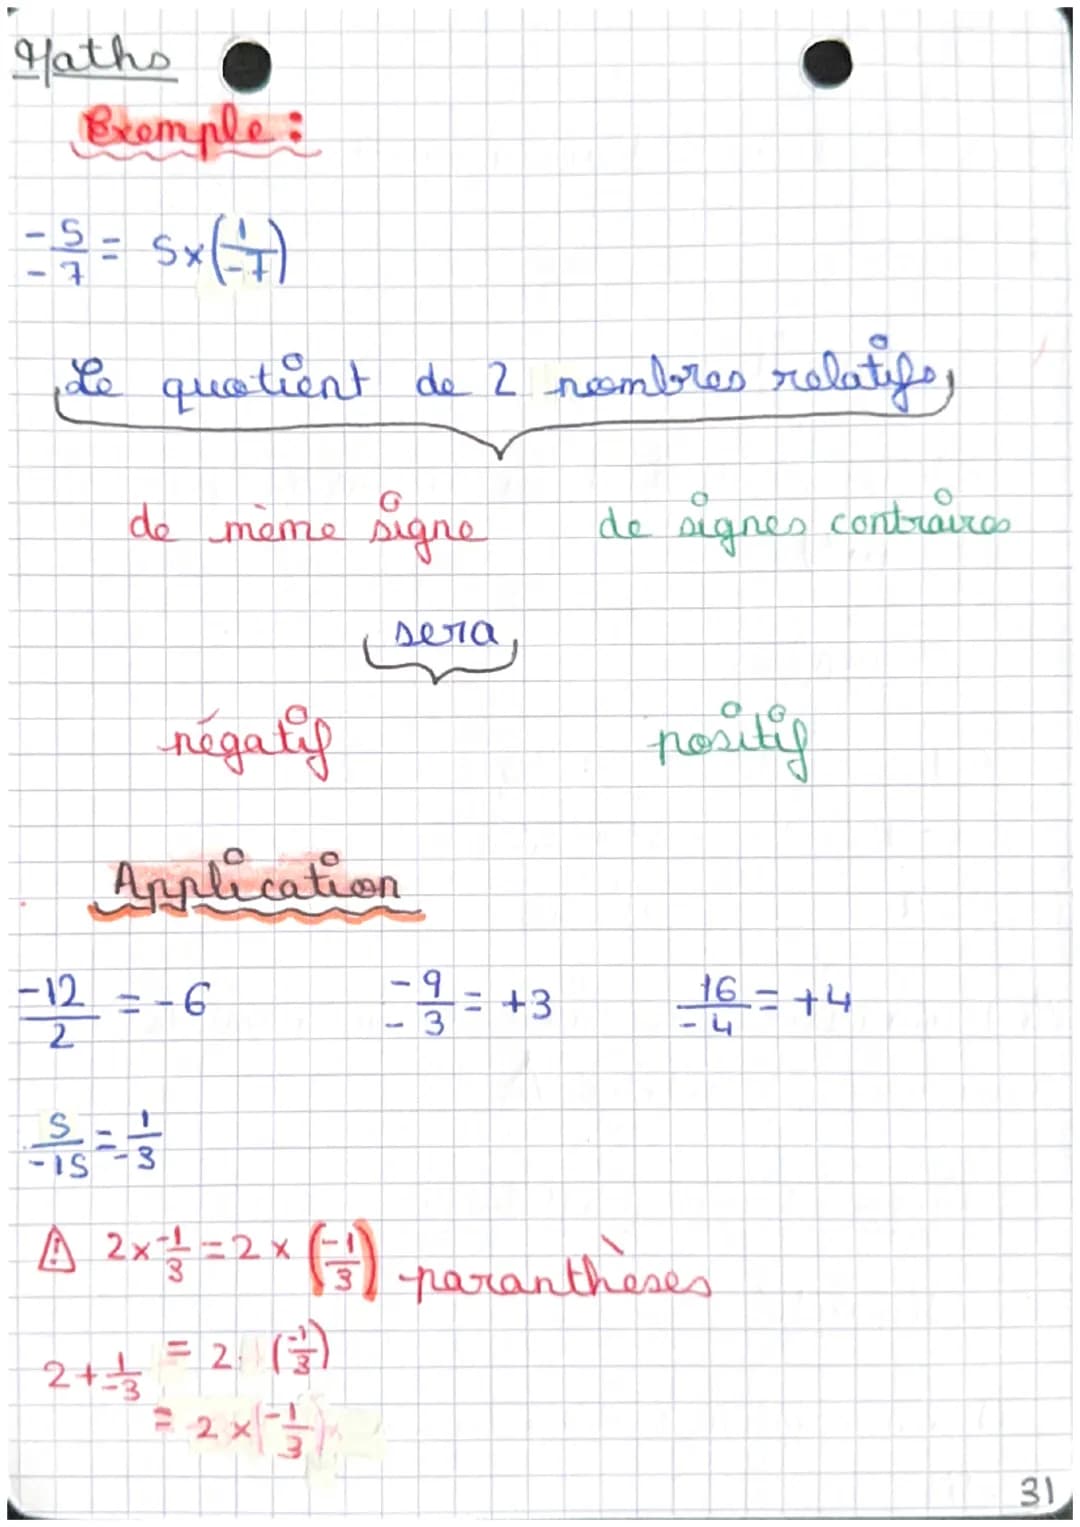 Maths
Exemple :
-5/-7 = 5×(1/-7)
Le quotient de 2 nombres relatifs
de même signe de signes contraires
sera
négatif positif
Application
-12/2 = -6 -9/-3 = +3 16/-4 = +4
5/-15 = -1/3
⚠ 2×-1/3 = 2×(-1/3) paranthèses
2+1/-3 = 2 (-1/3)
= 2×(-1/3)
31